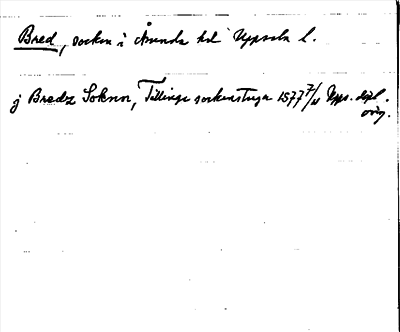 Bred, socken i Åsunda hd Uppsala l.
j Bredz Soknn, Tillinge sockenstuga 1577 7/11 Upps. dipl.
orig.